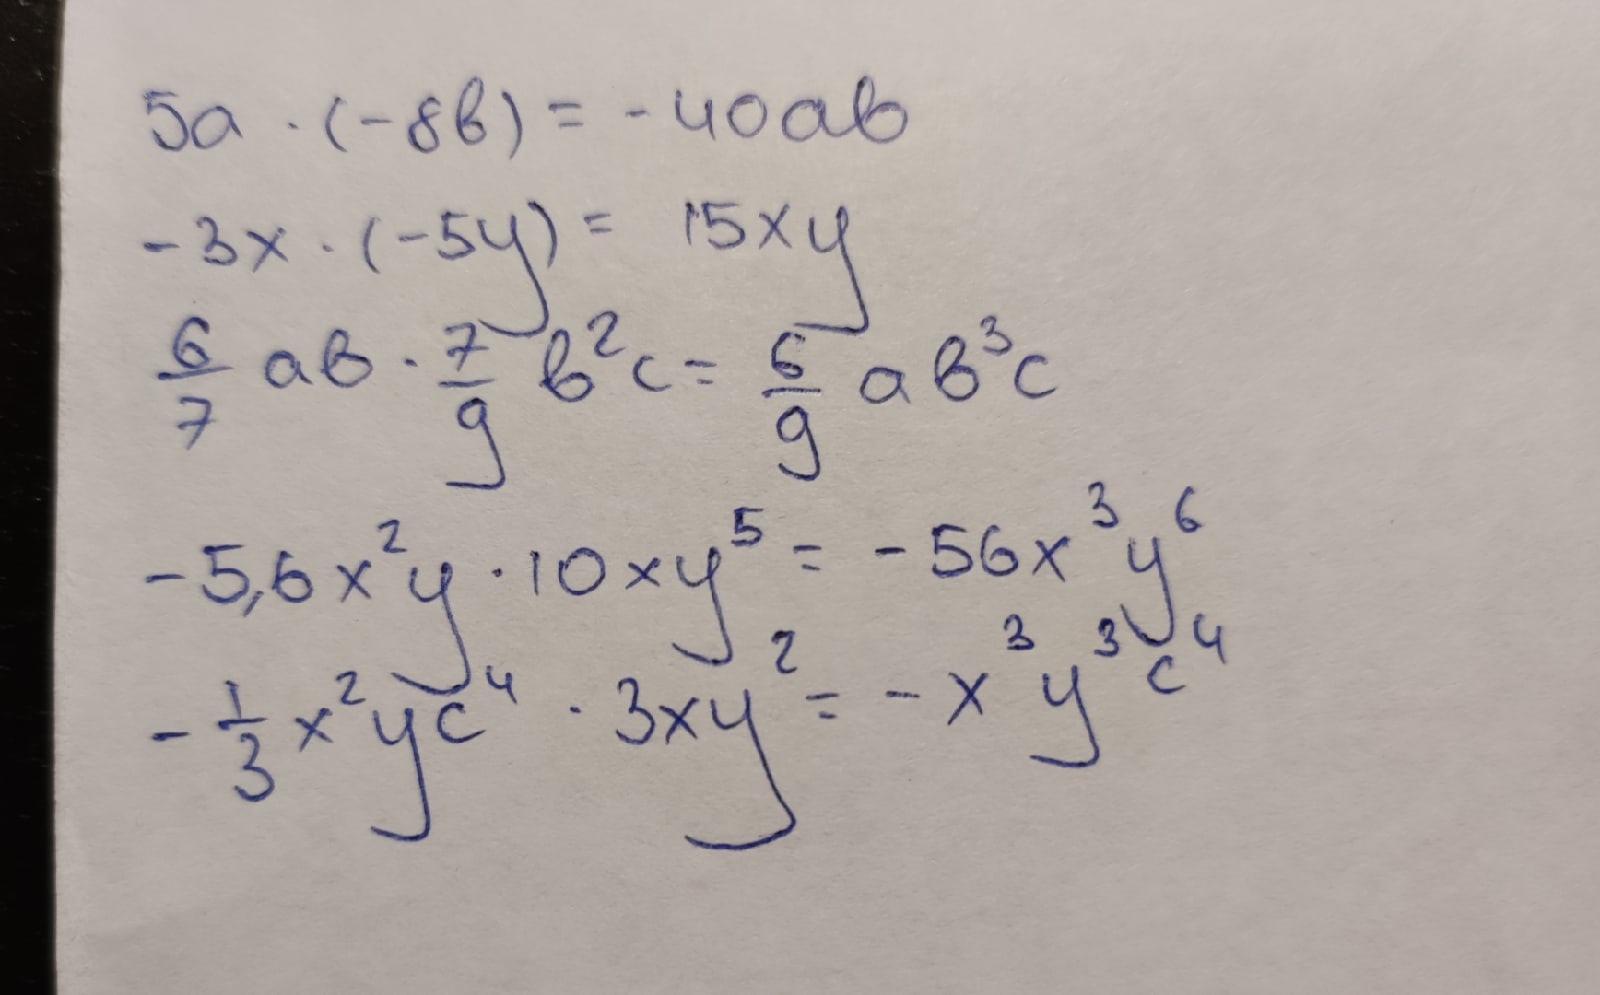 5a · (-8b) = -40ab
-3x · (-5y) = 15xy
6/7 ab · 7/9 b²c = 6/9 ab³c
-5,6x²y · 10xy⁵ = -56x³y⁶
-1/3 x²yc⁴ · 3xy² = -x³y³c⁴